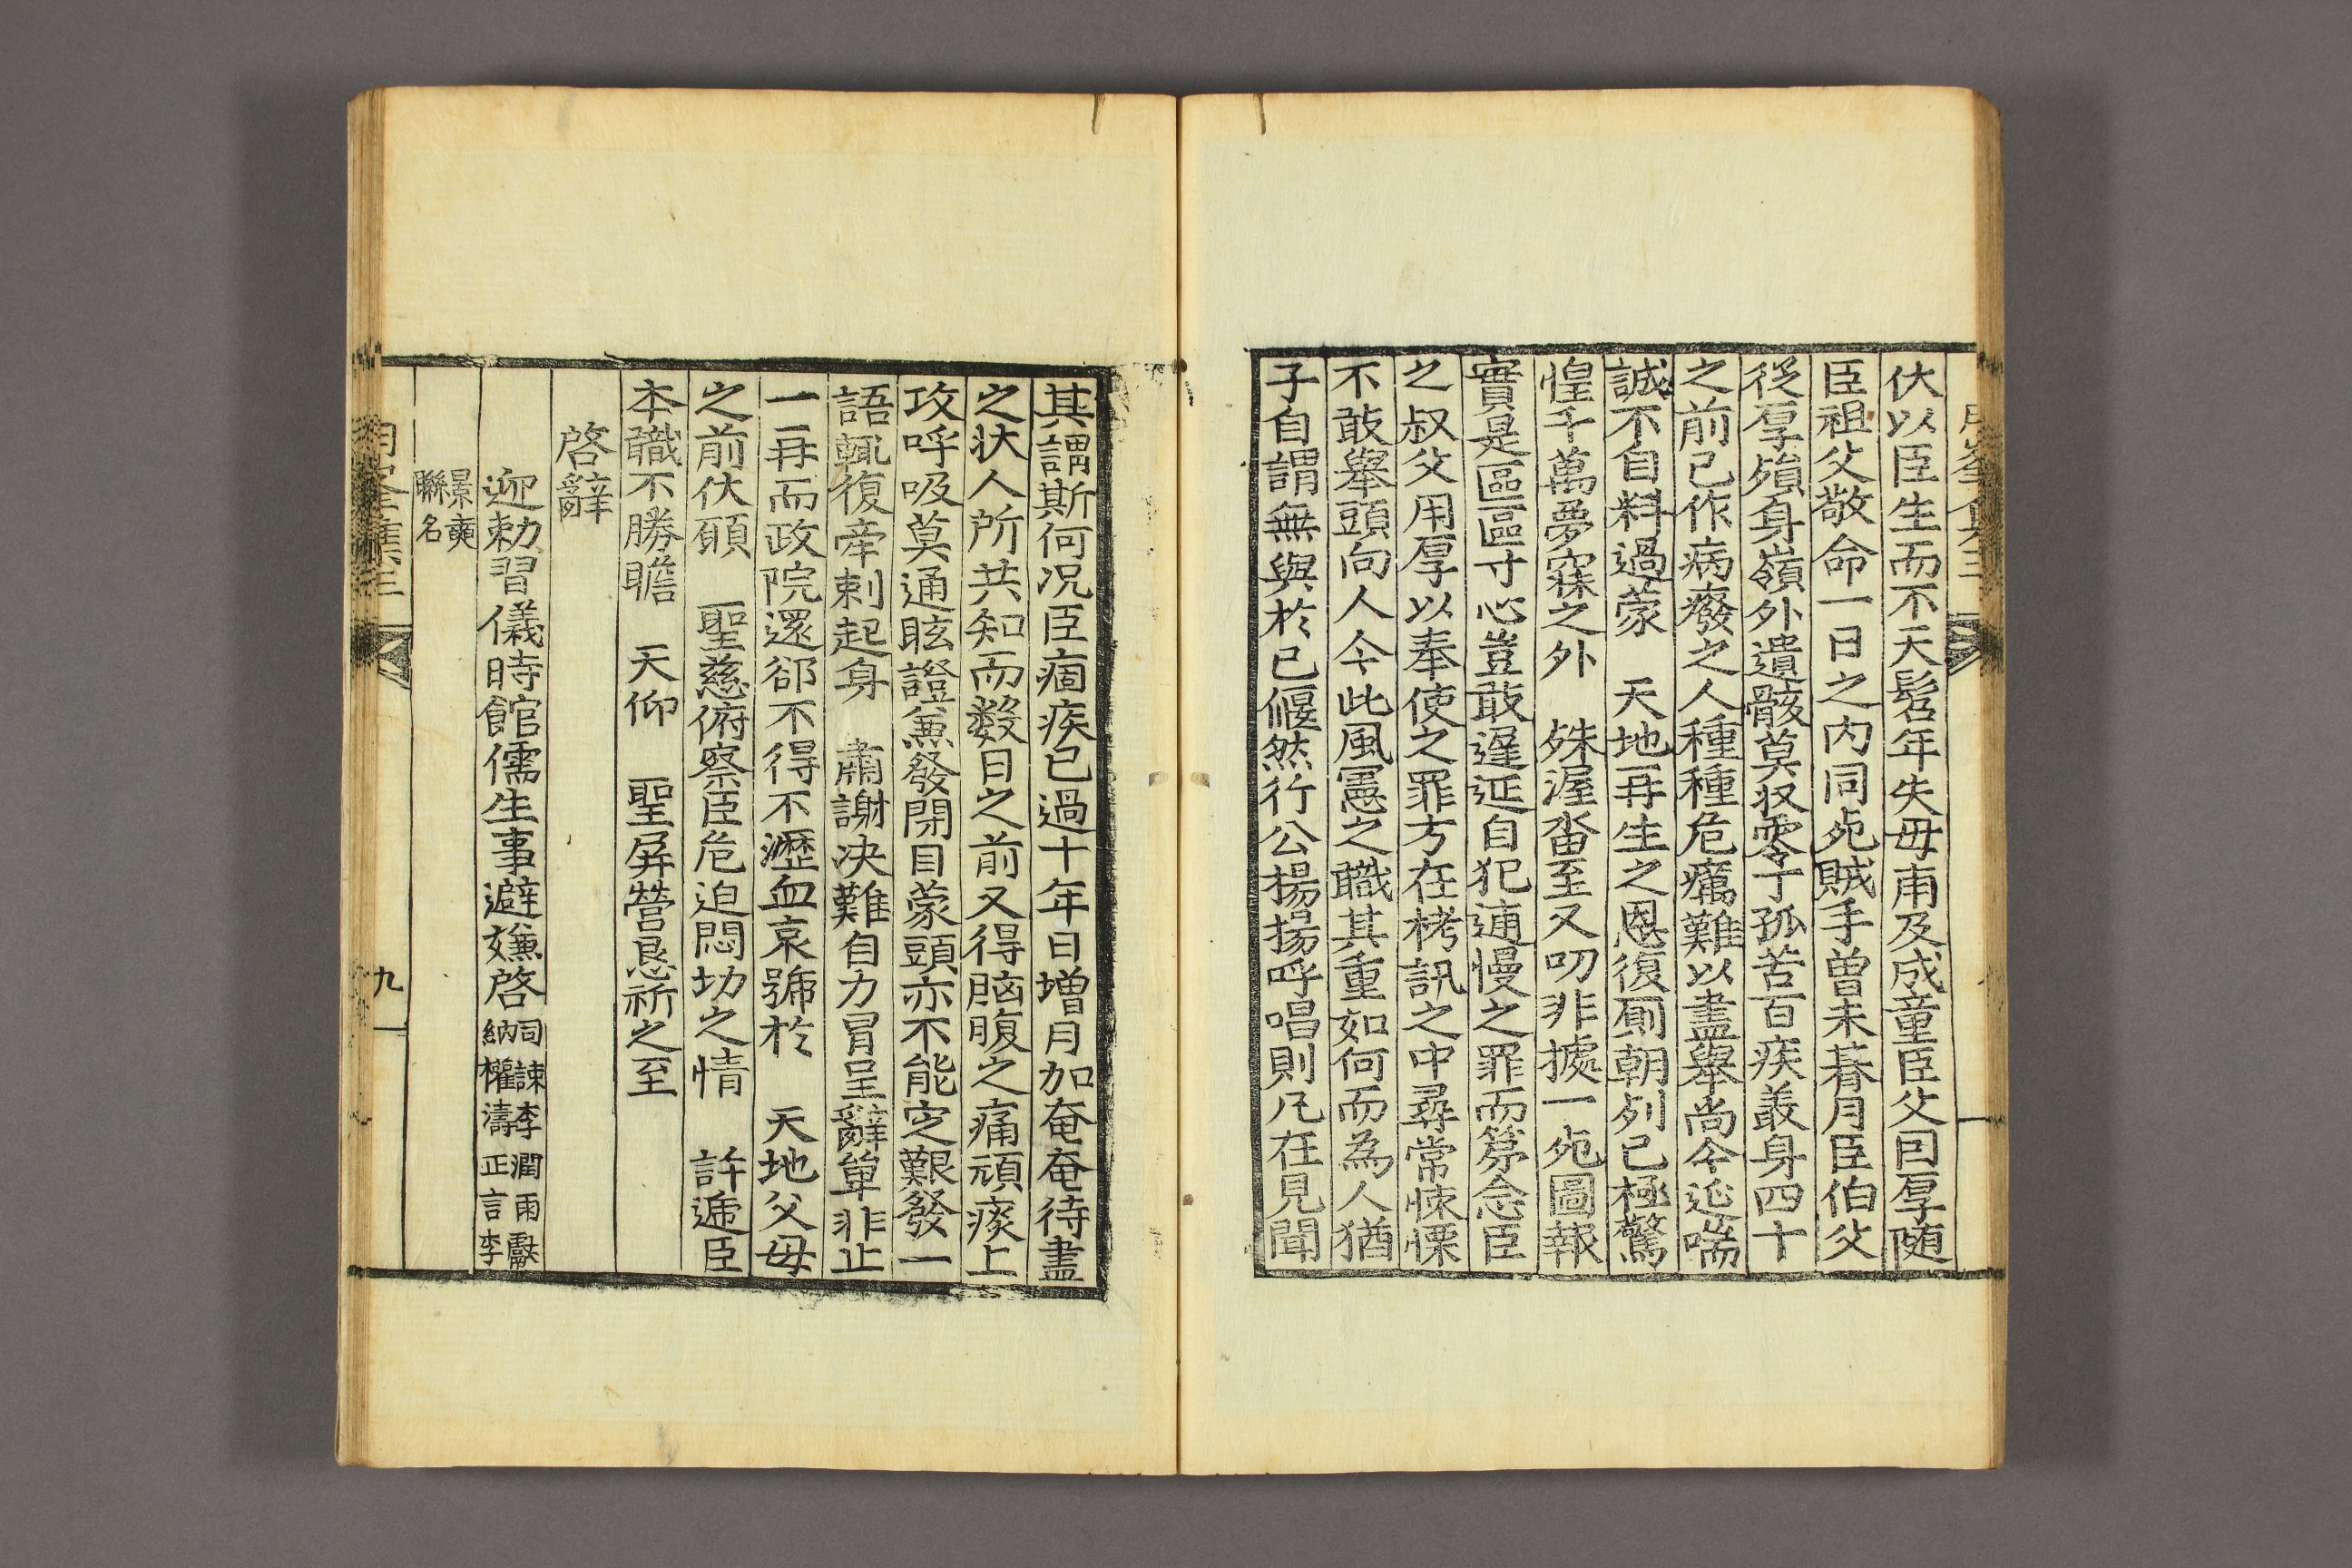 伏以臣生而不天髫年失母甫及成童臣父因厚随
臣祖父敬命一日之内同死賊手曾未朞月臣伯父
從厚殞身嶺外遺骸莫収零丁孤苦百疾叢身四十
之前已作病癈之人種種危癘難以盡舉尚今延喘
誠不自料過蒙　天地再生之恩復厠朝列已極驚
惶千萬夢寐之外　殊渥畓至又叨非據一死圖報
實是區區寸心豈敢遲延自犯逋慢之罪而第念臣
之叔父用厚以奉使之罪方在栲訊之中尋常悚慄
不敢舉頭向人今此風憲之職其重如何而為人猶
子自謂無與扵已偃然行公揚揚呼唱則凡在見聞
其謂斯何况臣痼疾已過十年日增月加奄奄待盡
之状人所共知而数日之前又得脳腹之痛頑痰上
攻呼吸莫通眩證兼發閉目蒙頭亦不能定艱發一
語輒復牽剌起身　肅謝决難自力冒呈辭單非止
一再而政院還郤不得不瀝血哀號扵　天地父母
之前伏願　聖慈俯察臣危迫悶切之情　許遞臣
本職不勝瞻　天仰　聖屏營恳祈之至
啓辭
迎勅習儀時館儒生事避嫌啓 司諫李潤雨獻
納權濤正言李
景奭
聯名
九